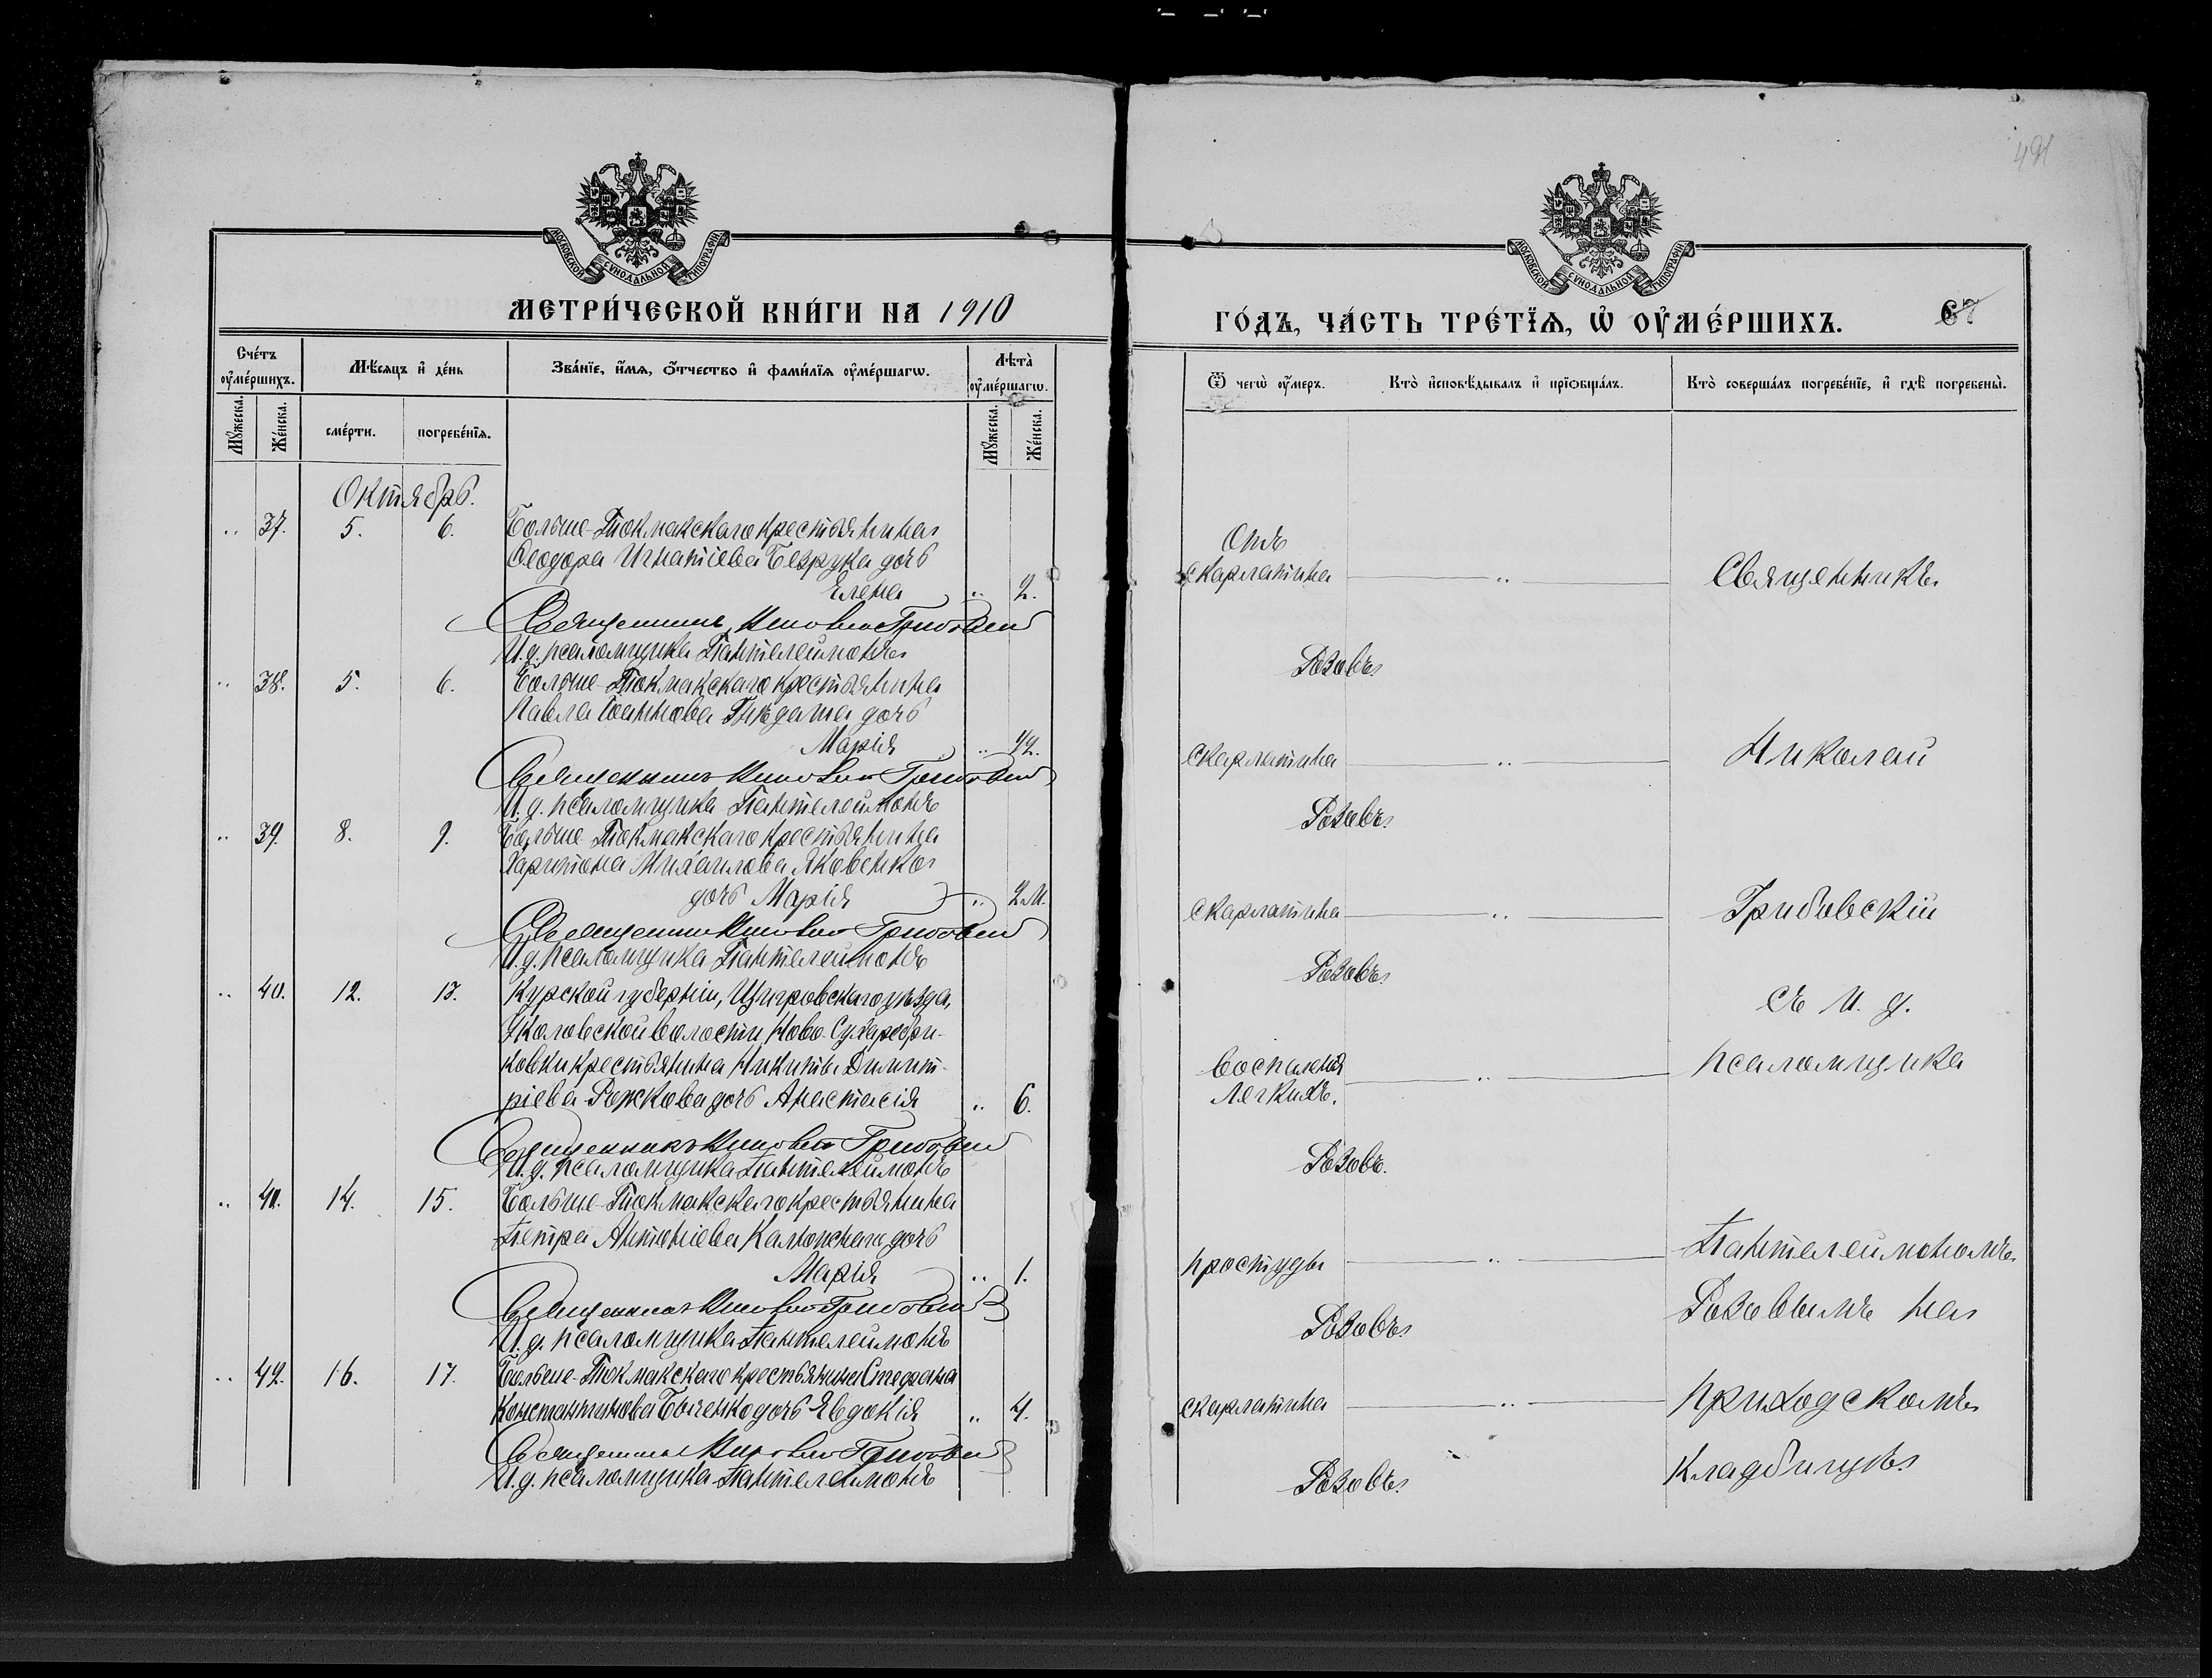 491
МОСКОВСКОЙ СѴНОДАЛЬНОЙ ТИПОГРАФІИ
МЕТРИ́ЧЕСКОЙ КНИ́ГИ НА 1910
Сче́тъ ᲂу҆ме́ршихъ.
Мѣ́сяцъ и҆ де́нь
Зва́нїе, и҆́мѧ, ѻ҆́тчество и҆ фами́лїѧ ᲂу҆ме́ршагѡ.
Лѣта̀ ᲂу҆ме́ршагѡ.
Мꙋ́жеска.
Же́нска.
сме́рти.
погребе́нїѧ.
Мꙋ́жеска.
Же́нска.
Октябрь.
.. 37. 5. 6. Больше-Токмакскаго крестьянина
Ѳеодора Игнатіева Безрука дочь
Елена .. 2.
Священникъ Николай Грибовскій
И. д. псаломщика Пантелеимонъ
.. 38. 5. 6. Больше-Токмакскаго крестьянина
Павла Іоаннова Гнѣдаша дочь
Марія ..
Священникъ Николай Грибовскій
И. д. псаломщика Пантелеимонъ
.. 39. 8. 9. Больше-Токмакскаго крестьянина
Харитона Михаилова Яковенко
дочь Марія .. 2 м.
Священникъ Николай Грибовскій
И. д. псаломщика Пантелеимонъ
.. 40. 12. 13. Курской губерніи, Щигровскаго уѣзда,
волости, Ново-
крестьянина Никиты Димит-
ріева Рожкова дочь Анастасія .. 6.
Священникъ Николай Грибовскій
И. д. псаломщика Пантелеимонъ
.. 41. 14. 15. Больше-Токмакскаго крестьянина
Петра Антоніева дочь
Марія .. 1.
Священникъ Николай Грибовскій
И. д. псаломщика Пантелеимонъ
.. 42. 16. 17. Больше-Токмакскаго крестьянина Стефана
Константинова дочь Евдокія .. 4.
Священникъ Николай Грибовскій
И. д. псаломщика Пантелеимонъ
МОСКОВСКОЙ СѴНОДАЛЬНОЙ ТИПОГРАФІИ
ГО́ДЪ, ЧА́СТЬ ТРЕ́ТЇѦ, Ѡ҆ ОУ҆МЕ́РШИХЪ.
Ѿ чегѡ̀ ᲂу҆́меръ.
Кто̀ и҆сповѣ́дывалъ и҆ прїѡбща́лъ.
Кто̀ соверша́лъ погребе́нїе, и҆ гдѣ̀ погребены̀.
Отъ
скарлатина .. Священникъ
Розовъ
скарлатина .. Николай
Розовъ
скарлатина .. Грибовскій
Розовъ
съ И. д.
воспаленія .. псаломщика
легкихъ.
Розовъ.
простуды .. Пантелеимономъ
Розовъ Розовымъ на
скарлатина .. приходскомъ
Розовъ. кладбищѣ